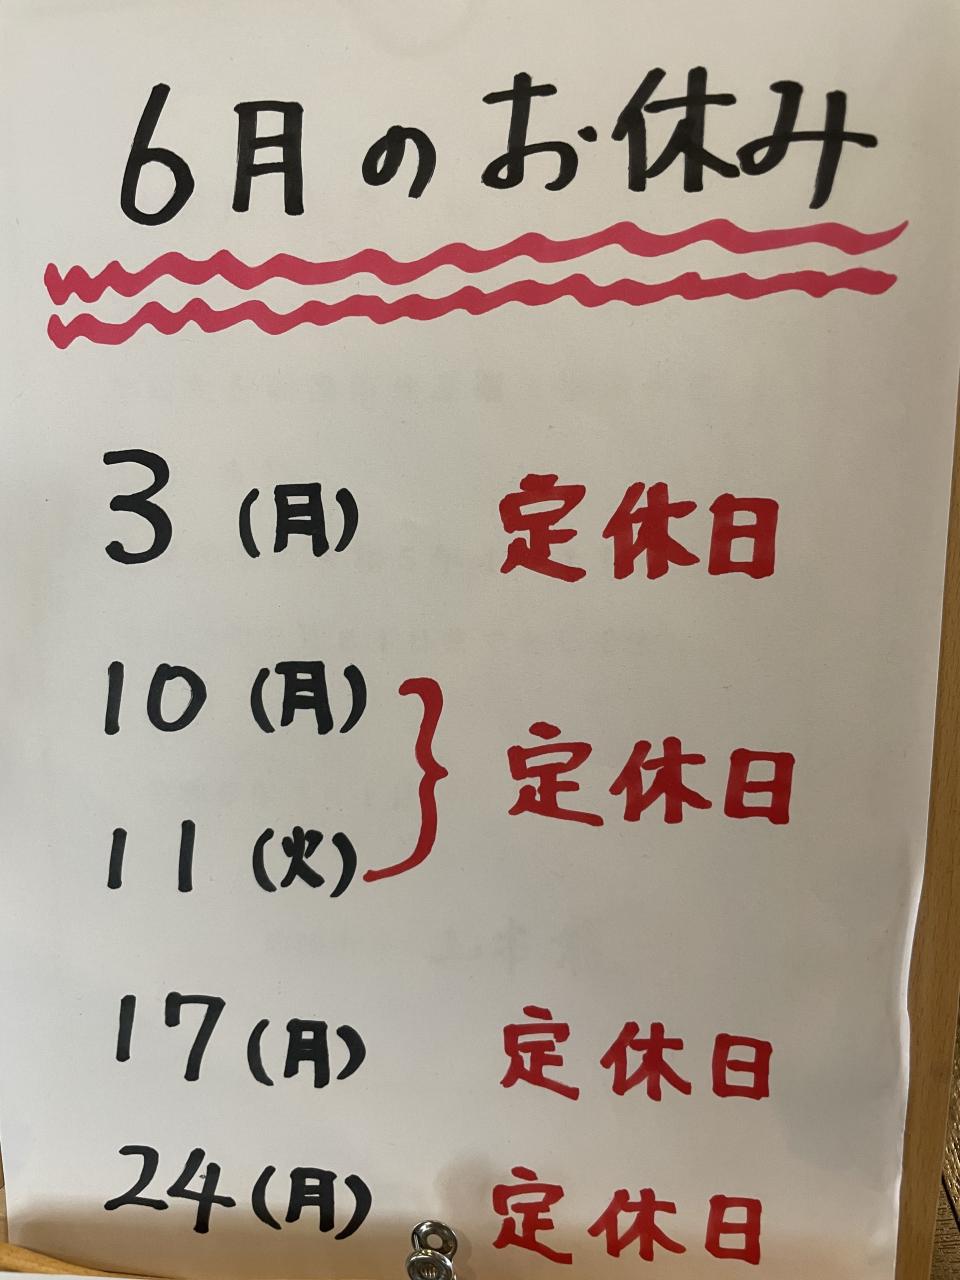 6月のお休み
3(月) 定休日
10(月)
11(火) 定休日
17(月) 定休日
24(月) 定休日